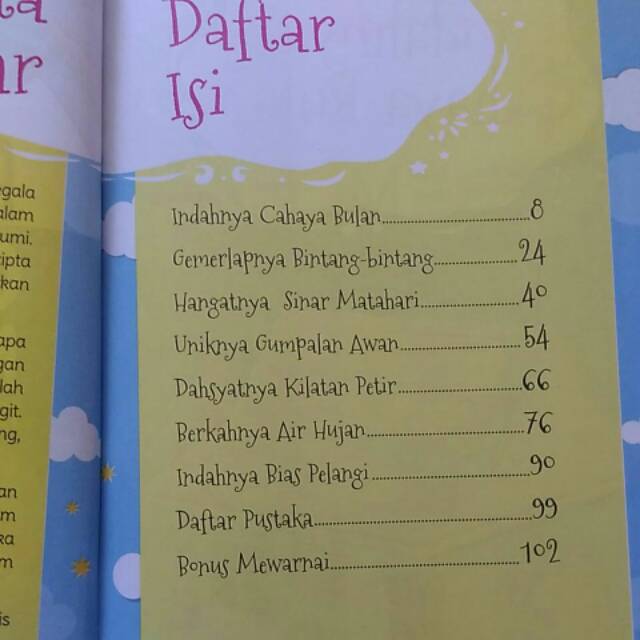 ta
ar
gala
alam
umi.
ipta
kan
apa
gan
lah
git.
ng,
an
m
ka
m
is
Daftar
Isi
Indahnya Cahaya Bulan..............................8
Gemerlapnya Bintang-bintang.................24
Hangatnya Sinar Matahari....................40
Uniknya Gumpalan Awan.........................54
Dahsyatnya Kilatan Petir.........................66
Berkahnya Air Hujan................................76
Indahnya Bias Pelangi................................90
Daftar Pustaka............................................99
Bonus Mewarnai.......................................102